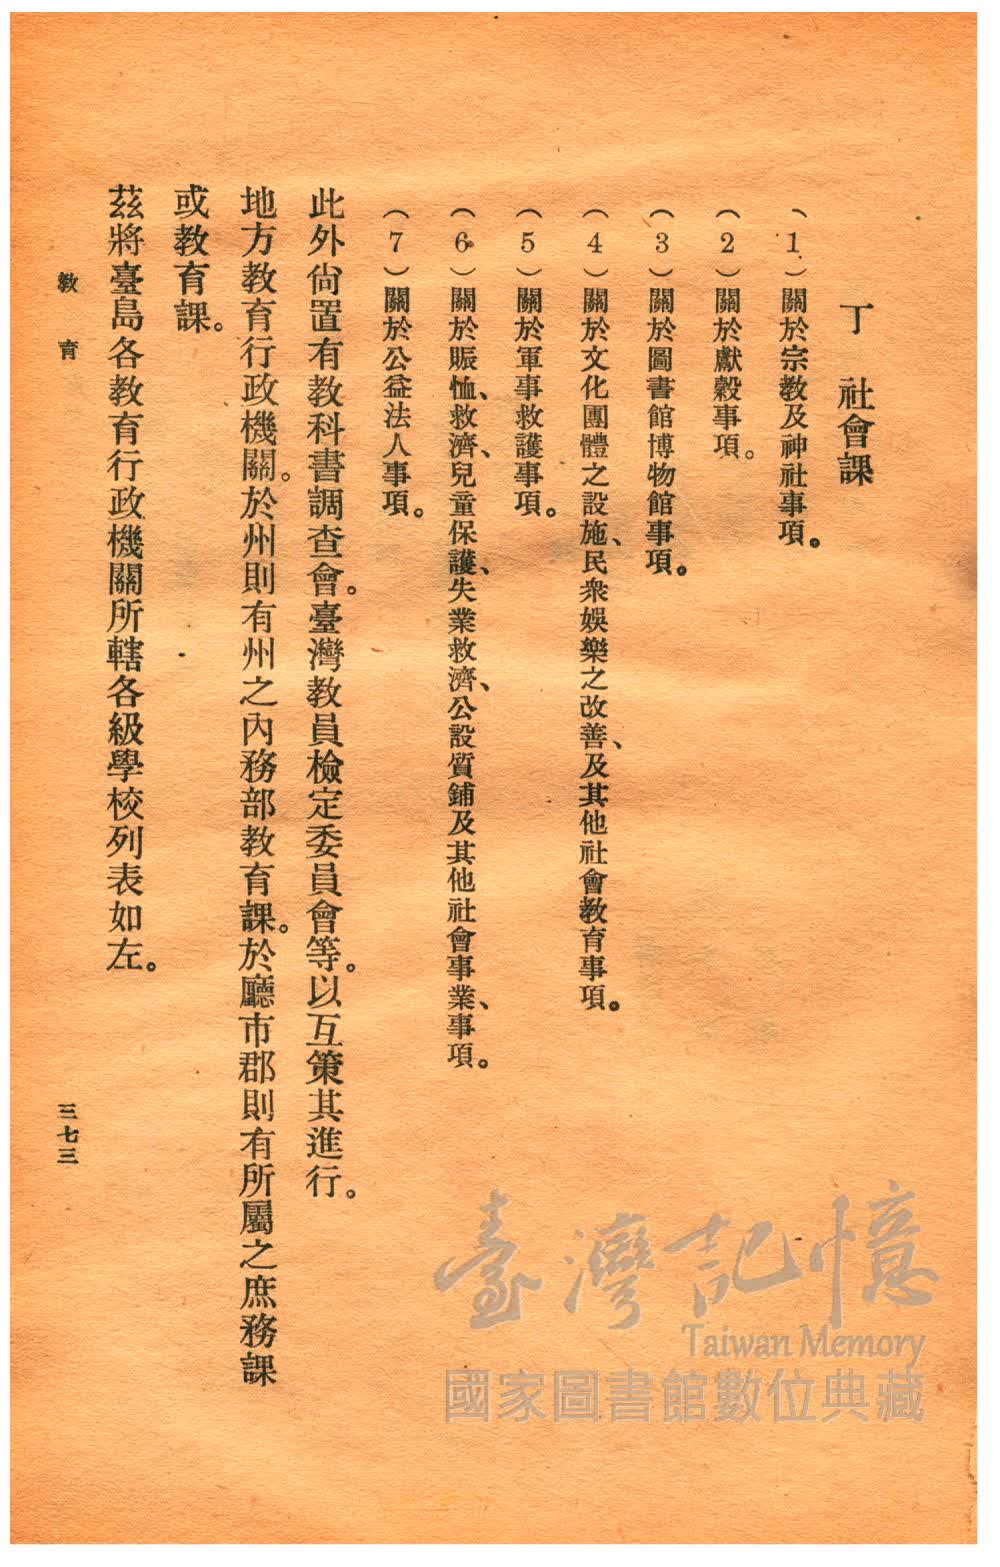 丁　社會課
（1）關於宗教及神社事項。
（2）關於獻穀事項。
（3）關於圖書館博物館事項。
（4）關於文化團體之設施、民衆娛樂之改善、及其他社會教育事項。
（5）關於軍事救護事項。
（6）關於賑恤、救濟、兒童保護、失業救濟、公設質鋪及其他社會事業、事項。
（7）關於公益法人事項。
此外尙置有教科書調查會。臺灣教員檢定委員會等。以互策其進行。
地方教育行政機關。於州則有州之內務部教育課。於廳市郡則有所屬之庶務課
或教育課。
茲將臺島各教育行政機關所轄各級學校列表如左。
教育
三七三
臺灣記憶
Taiwan Memory
國家圖書館數位典藏